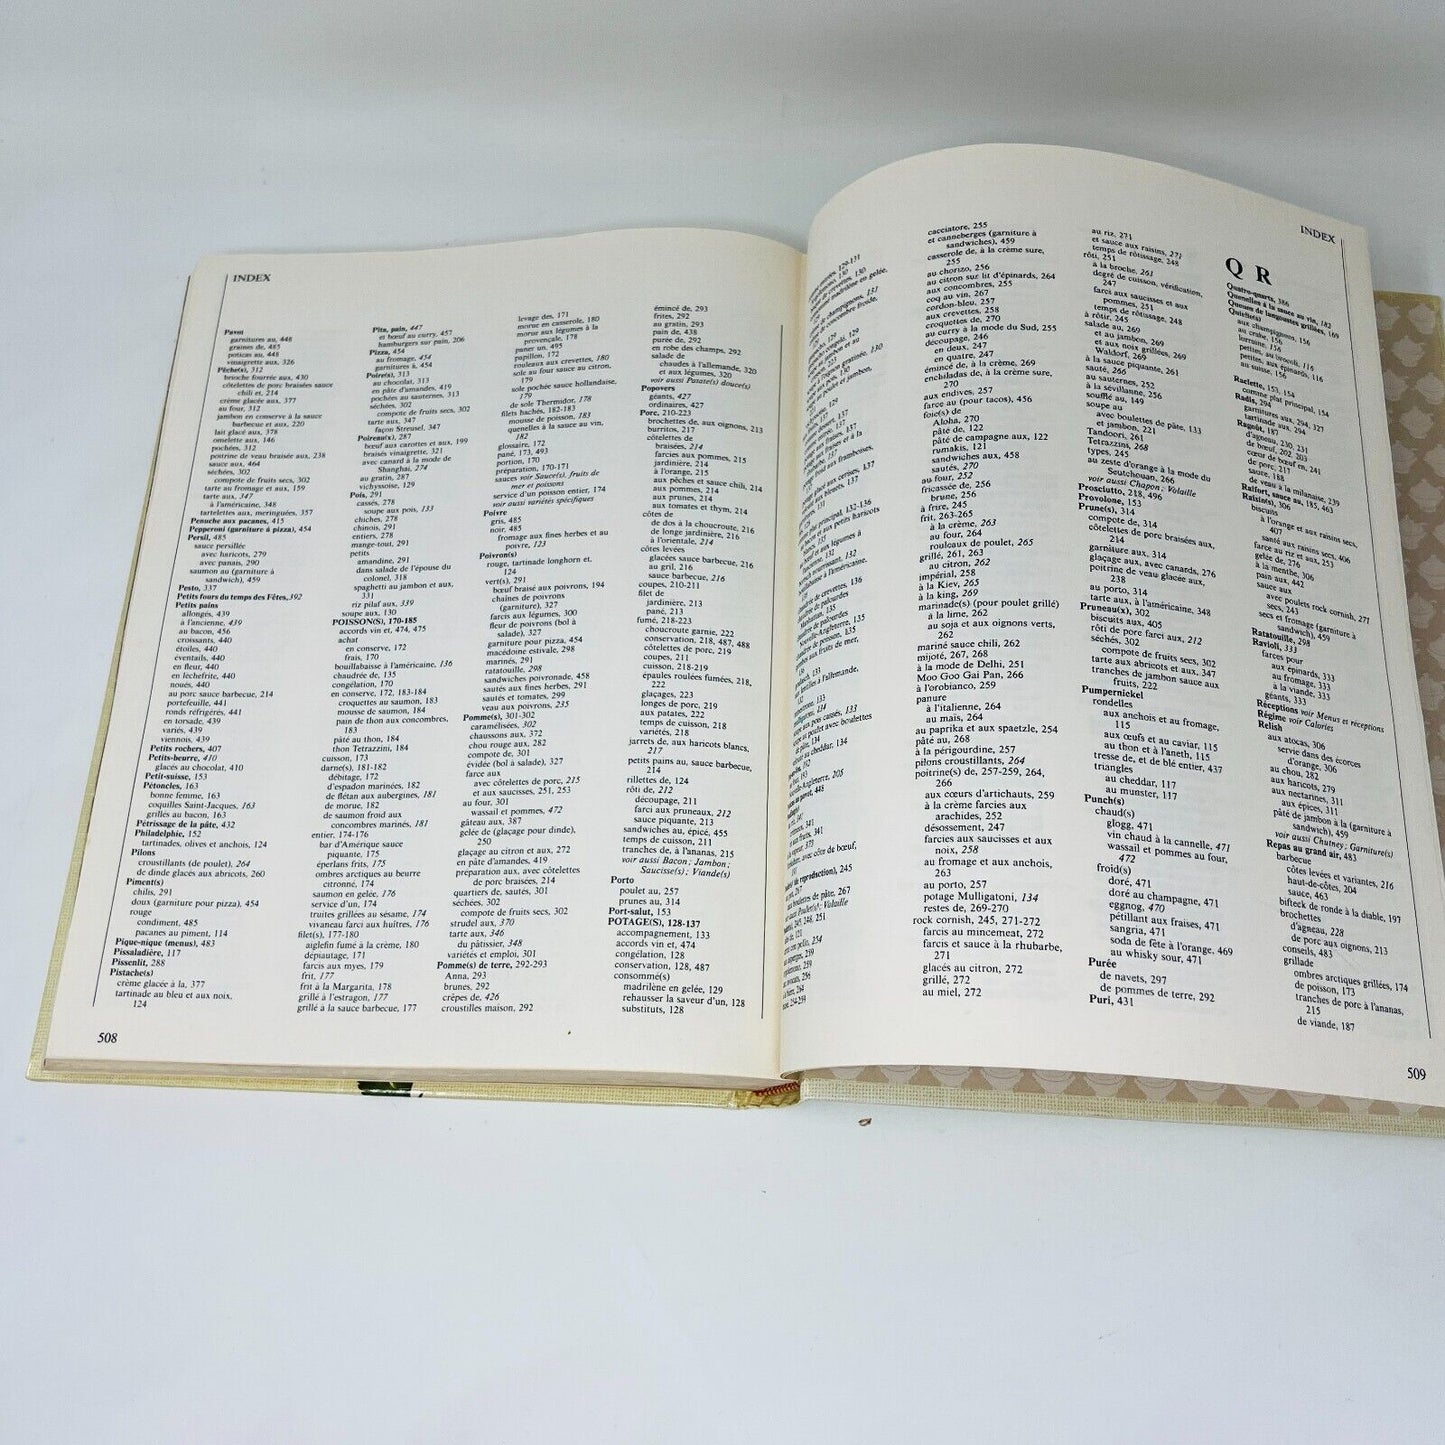 INDEX
Pavot
garnitures au, 448
graines de, 485
poticas au, 448
vinaigrette aux, 326
Pêche(s), 312
brioche fourrée aux, 430
côtelettes de porc braisées sauce
chili et, 214
crème glacée aux, 377
au four, 312
jambon en conserve à la sauce
barbecue et aux, 220
lait glacé aux, 378
omelette aux, 146
pochées, 312
poitrine de veau braisée aux, 238
sauce aux, 464
séchées, 302
compote de fruits secs, 302
tarte au fromage et aux, 159
tarte aux, 347
à l'américaine, 348
tartelettes aux, meringuées, 357
Penuche aux pacanes, 415
Pepperoni (garniture à pizza), 454
Persil, 485
sauce persillée
avec haricots, 279
avec panais, 290
saumon au (garniture à
sandwich), 459
Pesto, 337
Petits fours du temps des Fêtes, 392
Petits pains
allongés, 439
à l'ancienne, 439
au bacon, 456
croissants, 440
étoiles, 440
éventails, 440
en fleur, 440
en lèchefrite, 440
noués, 440
au porc sauce barbecue, 214
portefeuille, 441
ronds réfrigérés, 441
en torsade, 439
variés, 439
viennois, 439
Petits rochers, 407
Petits-beurre, 410
glacés au chocolat, 410
Petit-suisse, 153
Pétoncles, 163
bonne femme, 163
coquilles Saint-Jacques, 163
grillés au bacon, 163
Pétrissage de la pâte, 432
Philadelphie, 152
tartinades, olives et anchois, 124
Pilons
croustillants (de poulet), 264
de dinde glacés aux abricots, 260
Piment(s)
chilis, 291
doux (garniture pour pizza), 454
rouge
condiment, 485
pacanes au piment, 114
Pique-nique (menus), 483
Pissaladière, 117
Pissenlit, 288
Pistache(s)
crème glacée à la, 377
tartinade au bleu et aux noix,
124
Pita, pain, 447
et bœuf au curry, 457
hamburgers sur pain, 206
Pizza, 454
au fromage, 454
garnitures à, 454
Poire(s), 313
au chocolat, 313
en pâte d'amandes, 419
pochées au sauternes, 313
séchées, 302
compote de fruits secs, 302
tarte aux, 347
façon Streusel, 347
Poireau(x), 287
bœuf aux carottes et aux, 199
braisés vinaigrette, 321
avec canard à la mode de
Shanghai, 274
au gratin, 287
vichyssoise, 129
Pois, 291
cassés, 278
soupe aux pois, 133
chiches, 278
chinois, 291
entiers, 278
mange-tout, 291
petits
amandine, 291
dans salade de l'épouse du
colonel, 318
spaghetti au jambon et aux,
331
riz pilaf aux, 339
soupe aux, 130
POISSON(S), 170-185
accords vin et, 474, 475
achat
en conserve, 172
frais, 170
bouillabaisse à l'américaine, 136
chaudrée de, 135
congélation, 170
en conserve, 172, 183-184
croquettes au saumon, 183
mousse de saumon, 184
pain de thon aux concombres,
183
pâté au thon, 184
thon Tetrazzini, 184
cuisson, 173
darne(s), 181-182
débitage, 172
d'espadon marinées, 182
de flétan aux aubergines, 181
de morue, 182
de saumon froid aux
concombres marinés, 181
entier, 174-176
bar d'Amérique sauce
piquante, 175
éperlans frits, 175
ombres arctiques au beurre
citronné, 174
saumon en gelée, 176
service d'un, 174
truites grillées au sésame, 174
vivaneau farci aux huîtres, 176
filet(s), 177-180
aiglefin fumé à la crème, 180
dépiautage, 171
farcis aux myes, 179
frit, 177
frit à la Margarita, 178
grillé à l'estragon, 177
grillé à la sauce barbecue, 177
levage des, 171
morue en casserole, 180
morue aux légumes à la
provençale, 178
paner un, 495
papillon, 172
rouleaux aux crevettes, 180
sole au four sauce au citron,
179
sole pochée sauce hollandaise,
179
de sole Thermidor, 178
filets hachés, 182-183
mousse de poisson, 183
quenelles à la sauce au vin,
182
glossaire, 172
pané, 173, 493
portion, 170
préparation, 170-171
sauces voir Sauce(s), fruits de
mer et poissons
service d'un poisson entier, 174
voir aussi variétés spécifiques
Poivre
gris, 485
noir, 485
fromage aux fines herbes et au
poivre, 123
Poivron(s)
rouge, tartinade longhorn et,
124
vert(s), 291
bœuf braisé aux poivrons, 194
chaînes de poivrons
(garniture), 327
farcis aux légumes, 300
fleur de poivrons (bol à
salade), 327
garniture pour pizza, 454
macédoine estivale, 298
marinés, 291
ratatouille, 298
sandwiches poivronade, 458
sautés aux fines herbes, 291
sautés et tomates, 299
veau aux poivrons, 235
Pomme(s), 301-302
caramélisées, 302
chaussons aux, 372
chou rouge aux, 282
compote de, 301
évidée (bol à salade), 327
farce aux
avec côtelettes de porc, 215
et aux saucisses, 251, 253
au four, 301
wassail et pommes, 472
gâteau aux, 387
gelée de (glaçage pour dinde),
250
glaçage au citron et aux, 272
en pâte d'amandes, 419
préparation aux, avec côtelettes
de porc braisées, 214
quartiers de, sautés, 301
séchées, 302
compote de fruits secs, 302
strudel aux, 370
tarte aux, 346
du pâtissier, 348
variétés et emploi, 301
Pomme(s) de terre, 292-293
Anna, 293
brunes, 292
crêpes de, 426
croustilles maison, 292
émincé de, 293
frites, 292
au gratin, 293
pain de, 438
purée de, 292
en robe des champs, 292
salade de
chaudes à l'allemande, 320
et aux légumes, 320
voir aussi Patate(s) douce(s)
Popovers
géants, 427
ordinaires, 427
Porc, 210-223
brochettes de, aux oignons, 213
burritos, 217
côtelettes de
braisées, 214
farcies aux pommes, 215
jardinière, 214
à l'orange, 215
aux pêches et sauce chili, 214
aux pommes, 214
aux prunes, 214
aux tomates et thym, 214
côtes de
de dos à la choucroute, 216
de longe jardinière, 216
à l'orientale, 214
côtes levées
glacées sauce barbecue, 216
au gril, 216
sauce barbecue, 216
coupes, 210-211
filet de
jardinière, 213
pané, 213
fumé, 218-223
choucroute garnie, 222
conservation, 218, 487, 488
côtelettes de porc, 219
coupes, 211
cuisson, 218-219
épaules roulées fumées, 218,
222
glaçages, 223
longes de porc, 219
aux patates, 222
temps de cuisson, 218
variétés, 218
jarrets de, aux haricots blancs,
217
petits pains au, sauce barbecue,
214
rillettes de, 124
rôti de, 212
découpage, 211
farci aux pruneaux, 212
sauce piquante, 213
sandwiches au, épicé, 455
temps de cuisson, 211
tranches de, à l'ananas, 215
voir aussi Bacon; Jambon;
Saucisse(s); Viande(s)
Porto
poulet au, 257
prunes au, 314
Port-salut, 153
POTAGE(S), 128-137
accompagnement, 133
accords vin et, 474
congélation, 128
conservation, 128, 487
consommé(s)
madrilène en gelée, 129
rehausser la saveur d'un, 128
substituts, 128
508
INDEX
cacciatore, 255
et canneberges (garniture à
sandwiches), 459
casserole de, à la crème sure,
255
au chorizo, 256
au citron sur lit d'épinards, 264
aux concombres, 255
coq au vin, 267
cordon-bleu, 257
aux crevettes, 258
croquettes de, 270
au curry à la mode du Sud, 255
découpage, 246
en deux, 247
en quatre, 247
émincé de, à la crème, 269
enchiladas de, à la crème sure,
270
aux endives, 257
farce au (pour tacos), 456
foie(s) de
Aloha, 270
pâté de, 122
pâté de campagne aux, 122
rumakis, 121
sandwiches aux, 458
sautés, 270
au four, 252
fricassée de, 256
brune, 256
à frire, 245
frit, 263-265
à la crème, 263
au four, 264
rouleaux de poulet, 265
grillé, 261, 263
au citron, 262
impérial, 258
à la Kiev, 265
à la king, 269
marinade(s) (pour poulet grillé)
à la lime, 262
au soja et aux oignons verts,
262
mariné sauce chili, 262
mijoté, 267, 268
à la mode de Delhi, 251
Moo Goo Gai Pan, 266
à l'orobianco, 259
panure
à l'italienne, 264
au maïs, 264
au paprika et aux spaetzle, 254
pâté au, 268
à la périgourdine, 257
pilons croustillants, 264
poitrine(s) de, 257-259, 264,
266
aux cœurs d'artichauts, 259
à la crème farcies aux
arachides, 252
désossement, 247
farcies aux saucisses et aux
noix, 258
au fromage et aux anchois,
263
au porto, 257
potage Mulligatoni, 134
restes de, 269-270
rock cornish, 245, 271-272
farcis au mincemeat, 272
farcis et sauce à la rhubarbe,
271
glacés au citron, 272
grillé, 272
au miel, 272
au riz, 271
et sauce aux raisins, 271
temps de rôtissage, 248
rôti, 251
à la broche, 261
degré de cuisson, vérification,
247
farci aux saucisses et aux
pommes, 251
temps de rôtissage, 248
à rôtir, 245
salade au, 269
au jambon, 269
et aux noix grillées, 269
Waldorf, 269
à la sauce piquante, 261
sauté, 266
au sauternes, 252
à la sévillanne, 256
soufflé au, 149
soupe au
avec boulettes de pâte, 133
et jambon, 221
Tandoori, 261
Tetrazzini, 268
types, 245
au zeste d'orange à la mode du
Seutchouan, 266
voir aussi Chapon; Volaille
Prosciutto, 218, 496
Provolone, 153
Prune(s), 314
compote de, 314
côtelettes de porc braisées aux,
214
garniture aux, 314
glaçage aux, avec canards, 276
poitrine de veau glacée aux,
238
au porto, 314
tarte aux, à l'américaine, 348
Pruneau(x), 302
biscuits aux, 405
rôti de porc farci aux, 212
séchés, 302
compote de fruits secs, 302
tarte aux abricots et aux, 347
tranches de jambon sauce aux
fruits, 222
Pumpernickel
rondelles
aux anchois et au fromage,
115
aux œufs et au caviar, 115
au thon et à l'aneth, 115
tresse de, et de blé entier, 437
triangles
au cheddar, 117
au munster, 117
Punch(s)
chaud(s)
glogg, 471
vin chaud à la cannelle, 471
wassail et pommes au four,
472
froid(s)
doré, 471
doré au champagne, 471
eggnog, 470
pétillant aux fraises, 471
sangria, 471
soda de fête à l'orange, 469
au whisky sour, 471
Purée
de navets, 297
de pommes de terre, 292
Puri, 431
Q R
Quatre-quarts, 386
Quenelles à la sauce au vin, 182
Queues de langoustes grillées, 169
Quiche(s)
aux champignons, 156
au crabe, 156
lorraine, 156
petites, au brocoli, 116
petites, aux épinards, 116
au suisse, 156
Raclette, 153, 154
comme plat principal, 154
Radis, 294
garnitures aux, 294, 327
tartinade aux, 294
Ragoût, 187
d'agneau, 230, 231
de bœuf, 202, 203
cœur de bœuf en, 241
de porc, 217
sauce, 188
de veau à la milanaise, 239
Raifort, sauce au, 185, 463
Raisin(s), 306
biscuits
à l'orange et aux raisins secs,
407
santé aux raisins secs, 406
farce au riz et aux, 253
gelée de, 276
à la menthe, 306
pain aux, 442
sauce aux
avec poulets rock cornish, 271
secs, 243
secs et fromage (garniture à
sandwich), 459
Ratatouille, 298
Ravioli, 333
farces pour
aux épinards, 333
au fromage, 333
à la viande, 333
géants, 333
Réceptions voir Menus et réceptions
Régime voir Calories
Relish
aux atocas, 306
servie dans des écorces
d'orange, 306
au chou, 282
aux haricots, 279
aux nectarines, 311
aux épices, 311
pâté de jambon à la (garniture à
sandwich), 459
voir aussi Chutney; Garniture(s)
Repas au grand air, 483
barbecue
côtes levées et variantes, 216
haut-de-côtes, 204
sauce, 463
bifteck de ronde à la diable, 197
brochettes
d'agneau, 228
de porc aux oignons, 213
conseils, 483
grillade
ombres arctiques grillées, 174
de poisson, 173
tranches de porc à l'ananas,
215
de viande, 187
509